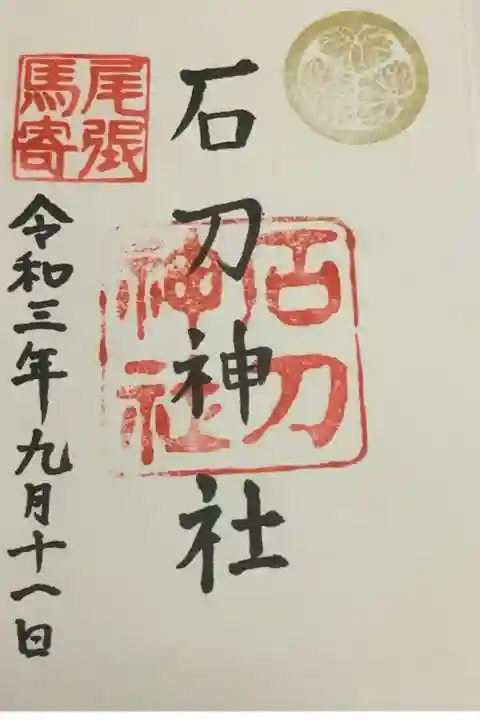 石刀神社
石刀
神社
尾張
馬寄
令和三年九月十一日